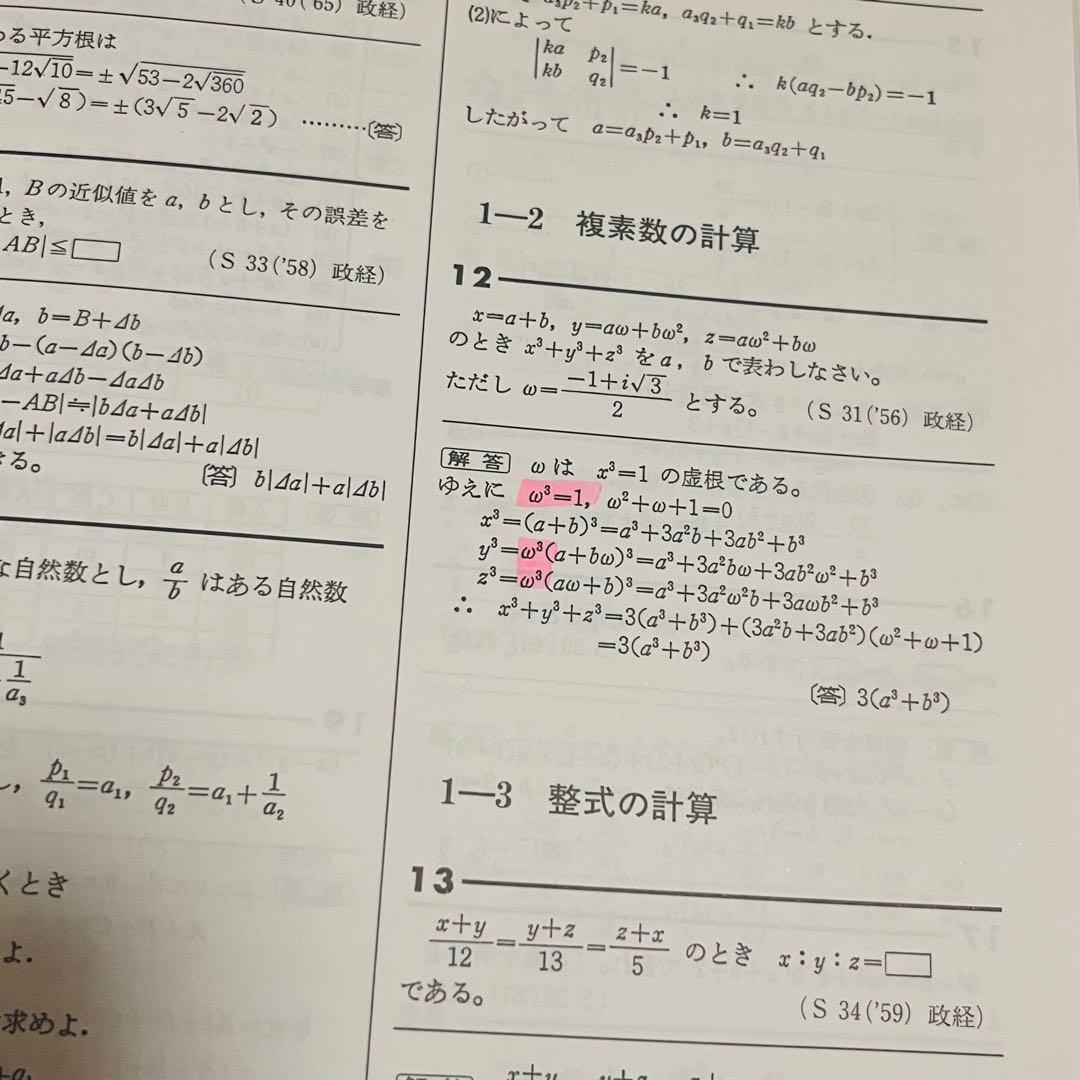 (S 40('65) 政経)
る平方根は
−12√10=±√(53−2√360)
−√8)=±(3√5−2√2) ………〔答〕
, Bの近似値をa, bとし, その誤差を
とき,
AB|≦□
(S 33('58) 政経)
Δa, b=B+Δb
b−(a−Δa)(b−Δb)
Δa+aΔb−ΔaΔb
−AB|≒|bΔa+aΔb|
Δa|+|aΔb|=b|Δa|+a|Δb|
きる。
〔答〕 b|Δa|+a|Δb|
な自然数とし, a/b はある自然数
1/a₃
, p₁/q₁=a₁, p₂/q₂=a₁+1/a₂
くとき
よ.
求めよ.
a₃p₂+p₁=ka, a₃q₂+q₁=kb とする.
(2)によって
|ka p₂|
|kb q₂|=−1 ∴ k(aq₂−bp₂)=−1
∴ k=1
したがって a=a₃p₂+p₁, b=a₃q₂+q₁
1—2 複素数の計算
12
x=a+b, y=aω+bω², z=aω²+bω
のとき x³+y³+z³ をa, b で表わしなさい。
ただし ω=(−1+i√3)/2 とする。 (S 31('56) 政経)
解答 ωは x³=1 の虚根である。
ゆえに ω³=1, ω²+ω+1=0
x³=(a+b)³=a³+3a²b+3ab²+b³
y³=ω³(a+bω)³=a³+3a²bω+3ab²ω²+b³
z³=ω³(aω+b)³=a³+3a²ω²b+3aωb²+b³
∴ x³+y³+z³=3(a³+b³)+(3a²b+3ab²)(ω²+ω+1)
=3(a³+b³)
〔答〕 3(a³+b³)
1—3 整式の計算
13
(x+y)/12=(y+z)/13=(z+x)/5 のとき x:y:z=□
である。
(S 34('59) 政経)